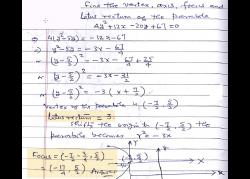 Find the vertex, axis, focus and
latus rectum of the parabola
4y² + 12x - 20y + 67 = 0
⇒ 4(y² - 5y) = -12x - 67
⇒ y² - 5y = -3x - 67/4
⇒ (y - 5/2)² = -3x - 67/4 + 25/4
⇒ (y - 5/2)² = -3x - 21/2
⇒ (y - 5/2)² = -3(x + 7/2)
vertex of the parabola is (-7/2, 5/2)
latus rectum = 3
shifting the origin to (-7/2, 5/2) the
parabola becomes Y² = -3X
Focus = (-7/2 - 3/4, 5/2)
= (-17/4, 5/2) Answer
Y
X